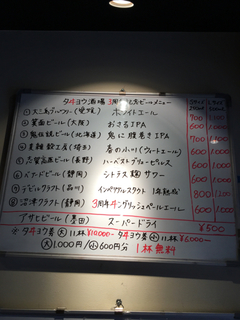 タイヨウ酒場 3周年記念ビールメニュー
①大三島ブルワリー(愛媛) ホワイトエール 700
②箕面ビール(大阪) おさるIPA 600 1000
③鬼伝説ビール(北海道) 鬼に腹巻きIPA 700 1100
④麦雑穀工房(埼玉) 春の小川(ウィートエール) 600 1000
⑤志賀高原ビール(長野) ハーベストブルーセゾン 600 1000
ベアードビール(静岡) シトラス麹サワー 600 1000
デビルクラフト(品川) インペリアルスタウト 1年熟成 800 1200
⑧沼津クラフト(静岡) 3周年イングリッシュペールエール 600 1000
アサヒビール(墨田) スーパードライ ¥500
☆タイヨウ券 大 11杯 ¥10,000- タイヨウ券 小 11杯 ¥6,000-
大1,000円/小600円分 1杯無料